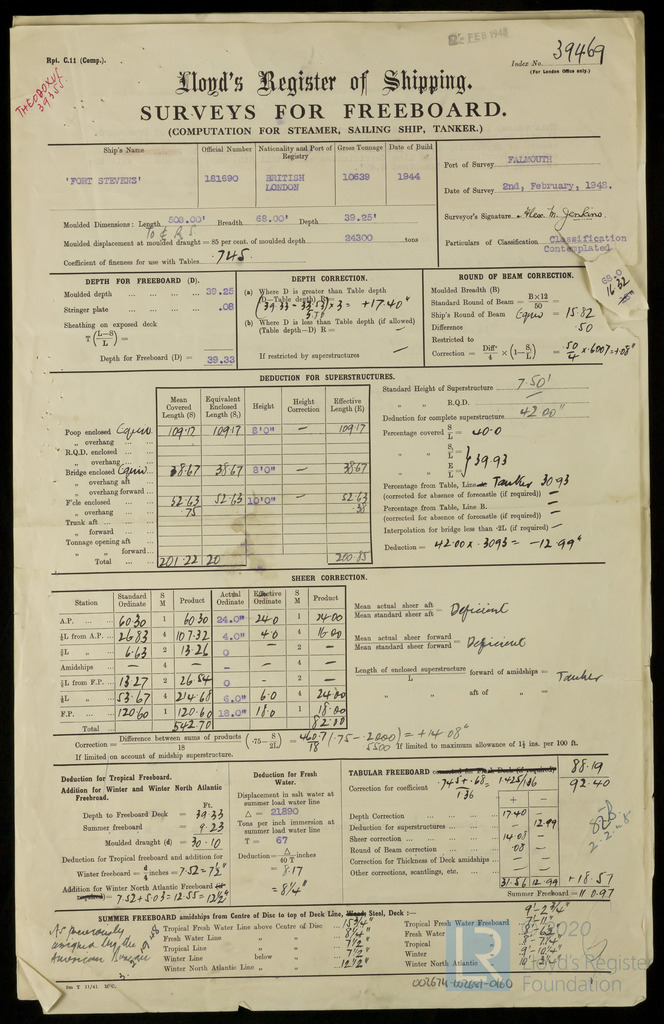 FEB 1948
Rpt. C.11 (Comp.).
Index No. 39469
(For London Office only.)
THEODOXUS
39355
Lloyd's Register of Shipping.
SURVEYS FOR FREEBOARD.
(COMPUTATION FOR STEAMER, SAILING SHIP, TANKER.)
Ship's Name Official Number Nationality and Port of Registry Gross Tonnage Date of Build
'FORT STEVENS' 181690 BRITISH LONDON 10639 1944
Port of Survey FALMOUTH
Date of Survey 2nd, February, 1948.
Surveyor's Signature Alex. M. Jenkins.
Particulars of Classification Classification Contemplated
Moulded Dimensions: Length 503.00' Breadth 68.00' Depth 39.25'
Moulded displacement at moulded draught = 85 per cent. of moulded depth 24300 tons
Coefficient of fineness for use with Tables .745
DEPTH FOR FREEBOARD (D).
Moulded depth ... 39.25
Stringer plate ... .08
Sheathing on exposed deck
T (L-S / L) =
Depth for Freeboard (D) = 39.33
DEPTH CORRECTION.
(a) Where D is greater than Table depth
(D-Table depth) R=
= +17.40"
(b) Where D is less than Table depth (if allowed)
(Table depth-D) R= —
If restricted by superstructures —
ROUND OF BEAM CORRECTION.
Moulded Breadth (B) 68.0
Standard Round of Beam = B×12 / 50 = 16.32
Ship's Round of Beam Equiv = 15.82
Difference .50
Restricted to
Correction = Diff / 4 × (1 - S₁ / L) = .50 / 4 × .6007 = +.08"
DEDUCTION FOR SUPERSTRUCTURES.
Mean Covered Length (S) Equivalent Enclosed Length (S₁) Height Height Correction Effective Length (E)
Poop enclosed Equiv 109.17 109.17 8'0" — 109.17
„ overhang
R.Q.D. enclosed
„ overhang
Bridge enclosed Equiv 38.67 38.67 8'0" — 38.67
„ overhang aft
„ overhang forward
F'cle enclosed 52.63 52.63 10'0" — 52.63
„ overhang .75 .38
Trunk aft
„ forward
Tonnage opening aft
„ „ forward
Total 201.22 200.85
Standard Height of Superstructure 7.50'
„ „ R.Q.D. —
Deduction for complete superstructure 42.00"
Percentage covered S / L = 40.0
„ „ S₁ / L
„ „ E / L } 39.93
Percentage from Table, Line Tanker 30.93
(corrected for absence of forecastle (if required)) —
Percentage from Table, Line B. —
(corrected for absence of forecastle (if required))
Interpolation for bridge less than .2L (if required) —
Deduction = 42.00 × .3093 = -12.99"
SHEER CORRECTION.
Station Standard Ordinate S M Product Actual Ordinate Effective Ordinate S M Product
A.P. 60.30 1 60.30 24.0" 24.0 1 24.00
⅙L from A.P. 26.83 4 107.32 4.0" 4.0 4 16.00
⅓L „ 6.63 2 13.26 0 — 2 —
Amidships — 4 — — — 4 —
⅓L from F.P. 13.27 2 26.54 0 — 2 —
⅙L „ 53.67 4 214.68 6.0" 6.0 4 24.00
F.P. 120.60 1 120.60 18.0" 18.0 1 18.00
Total 542.70 82.00
Mean actual sheer aft / Mean standard sheer aft = Deficient
Mean actual sheer forward / Mean standard sheer forward = Deficient
Length of enclosed superstructure / L forward of amidships = Tanker
„ „ aft of „ =
Correction = Difference between sums of products / 18 (.75 - S / 2L) = 460.7 / 18 (.75 - .2000) = +14.08"
If limited on account of midship superstructure. If limited to maximum allowance of 1½ ins. per 100 ft.
Deduction for Tropical Freeboard.
Addition for Winter and Winter North Atlantic Freeboard.
Ft.
Depth to Freeboard Deck = 39.33
Summer freeboard = 9.23
Moulded draught (d) = 30.10
Deduction for Tropical freeboard and addition for
Winter freeboard = d / 4 inches = 7.52 = 7½"
Addition for Winter North Atlantic Freeboard (if required) = 7.52 + 5.03 = 12.55 = 12½"
Deduction for Fresh Water.
Displacement in salt water at summer load water line
△ = 21890
Tons per inch immersion at summer load water line
T = 67
Deduction = △ / 40 T inches
= 8.17
= 8¼"
TABULAR FREEBOARD corrected for Flush Deck (if required) 88.19
Correction for coefficient .745 + .68 / 1.36 = 1.425 / 1.36 92.40
+ −
Depth Correction 17.40 —
Deduction for superstructures — 12.99
Sheer correction 14.08 —
Round of Beam correction .08 —
Correction for Thickness of Deck amidships — —
Other corrections, scantlings, etc.
31.56 12.99 +18.57
Summer Freeboard = 110.97
SUMMER FREEBOARD amidships from Centre of Disc to top of Deck Line, Wood, Steel, Deck :— 9'-2¾"
As previously assigned by the American Bureau
Tropical Fresh Water Line above Centre of Disc ... 15¾"
Fresh Water Line „ „ 8¼"
Tropical Line „ „ 7½
Winter Line below „ 7½
Winter North Atlantic Line „ „ 12½"
Tropical Fresh Water Freeboard 7'-11"
Fresh Water „ 8'-6½"
Tropical „ 8'-7¼"
Winter „ 9'-10¼"
Winter North Atlantic „ 10'-3¼"
5m T 11/41
002674-002681-0160
© 2020
Lloyd's Register
Foundation